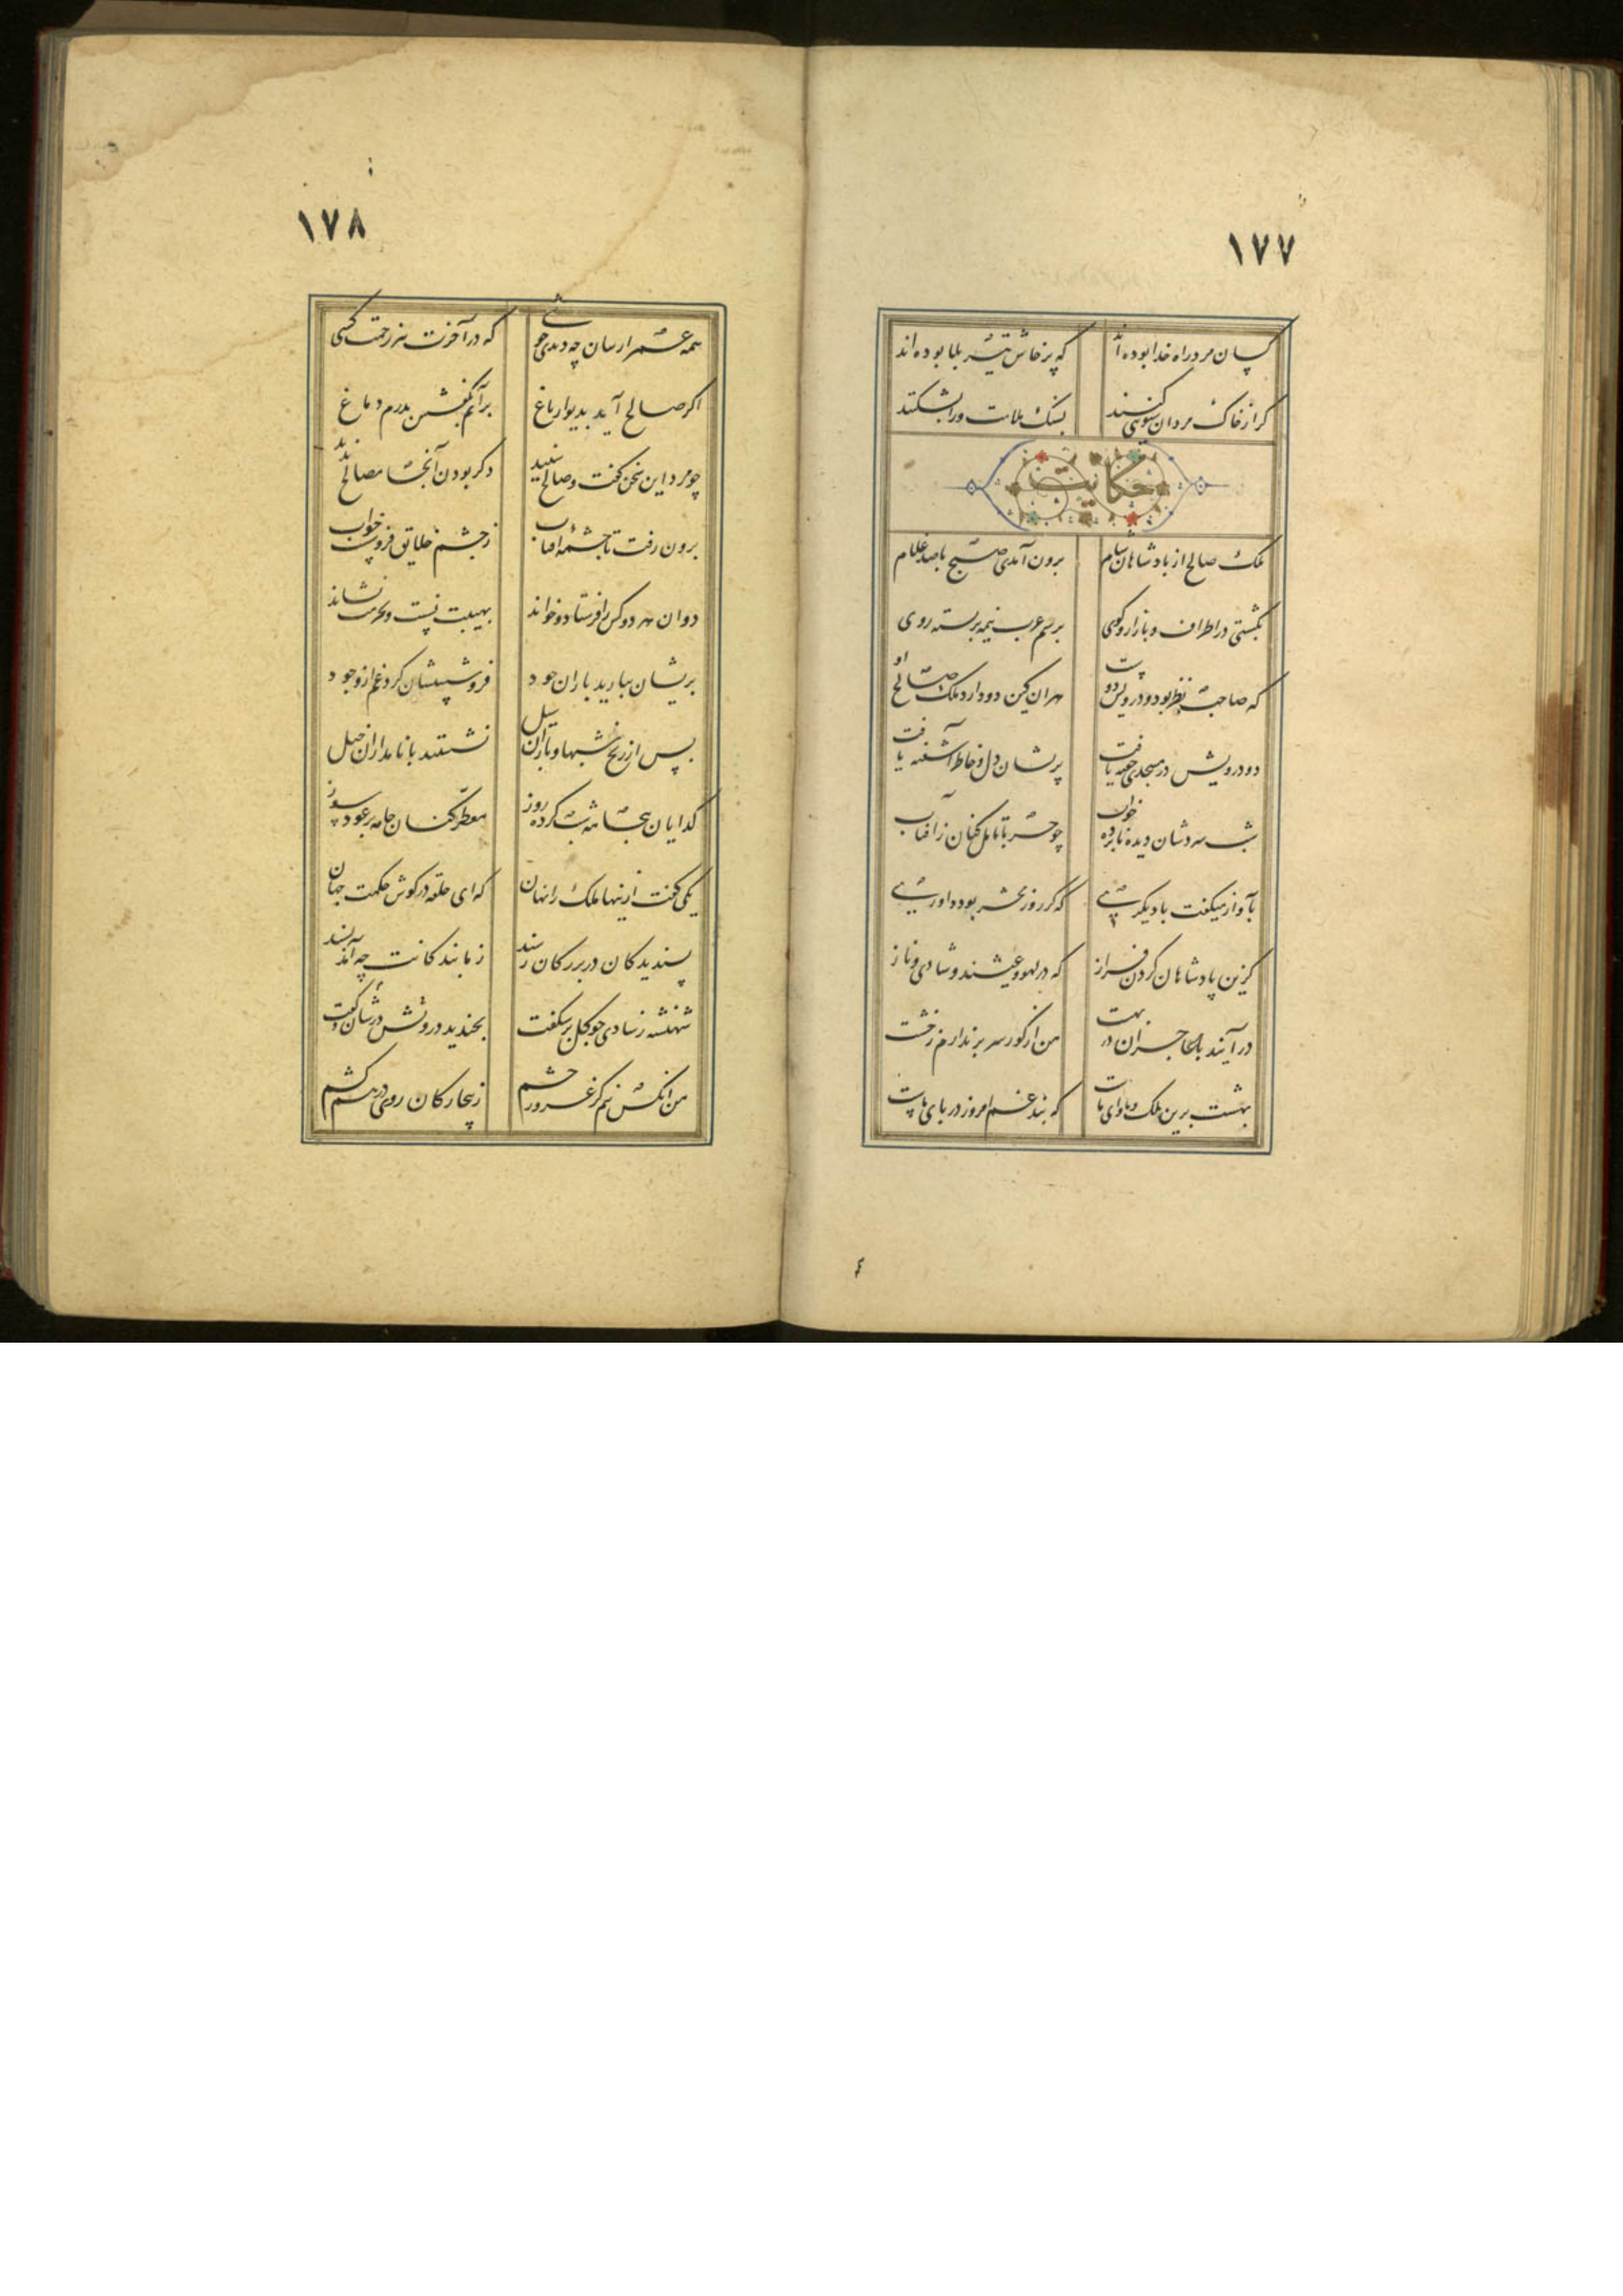 ١٧٧
کسان مرد راه خدا بوده اند که پرخاش تیر بلا بوده اند
گر از خاک مردان سبوئی کنند بسنک ملامت ورا بشکنند
حکایت
ملک صالح از پادشاهان شام برون آمدی صبح با صد غلام
بگشتی در اطراف و بازار و کوی برسم عرب نیمه بربسته روی
که صاحب نظر بود و درویش دوست هران کین دو دارد ملک صالح او
دو درویش در مسجدی خفته یافت پریشان دل و خاطر آشفته یافت
شب سردشان دیده نابرده خواب چو حربا تامل کنان زافتاب
بآواز میکفت با دیکری که کر روز محشر بود داوری
کزین پادشاهان کردن فراز که در لهو و عیشند و شادی و ناز
در آیند با عاجزان در بهشت من از کور سر بر ندارم ز خشت
بهشت برین ملک و ماوای ماست که بند غم امروز در پای ماست
١٧٨
همه عمر ازیشان چه دیدی خوشی که در آخرت نیز زحمت کشی
اکر صالح آید بدیوار باغ برآیم بکفشش بدرم دماغ
چو مرد این سخن کفت و صالح شنید دکر بودن آنجا مصالح ندید
برون رفت تا چشمه افتاب ز چشم خلایق فروشست خواب
دوان هر دو کس را فرستاد و خواند بهیبت نشست و بحرمت نشاند
بریشان ببارید باران جود فروشستشان کرد غم از وجود
پس از رنج شبها و باران سیل نشستند با نامداران خیل
کدایان بیجامه شب کرده روز معطر کنان جامه بر عود سوز
یکی کفت ازینها ملک را نهان که ای حلقه در کوش حکمت جهان
پسندیدکان در بزرکان رسند ز ما بندکانت چه آمد پسند
شهنشه ز شادی چو کل برشکفت بخندید در روی درویش و کفت
من انکس نیم کز غرور حشم ز بیچارکان روی در هم کشم